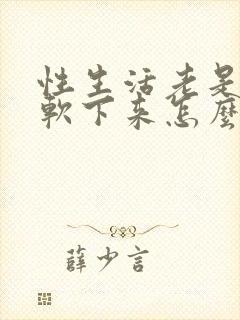 性生活老是
軟下來怎麼
薛少言